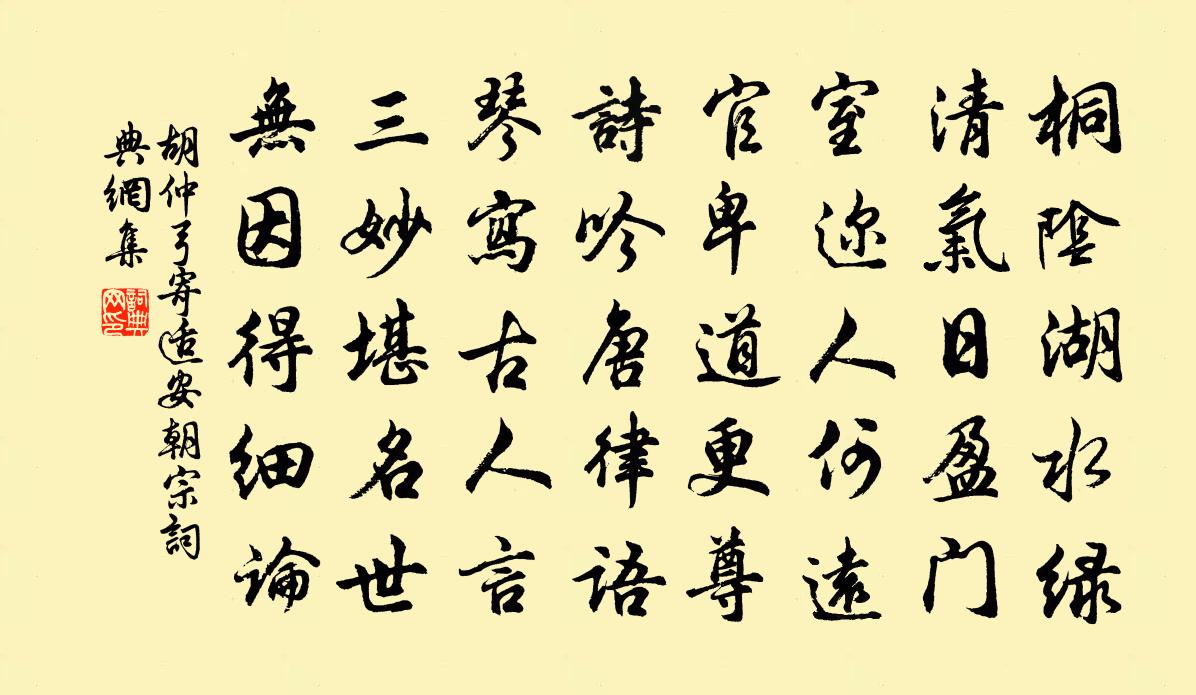 桐陰湖水绿
清氣日盈门
室迩人何遠
官卑道更尊
詩吟唐律語
琴寫古人言
三妙堪名世
無因得细論
胡仲弓寄适安朝宗詞
典網集
詞典
网印